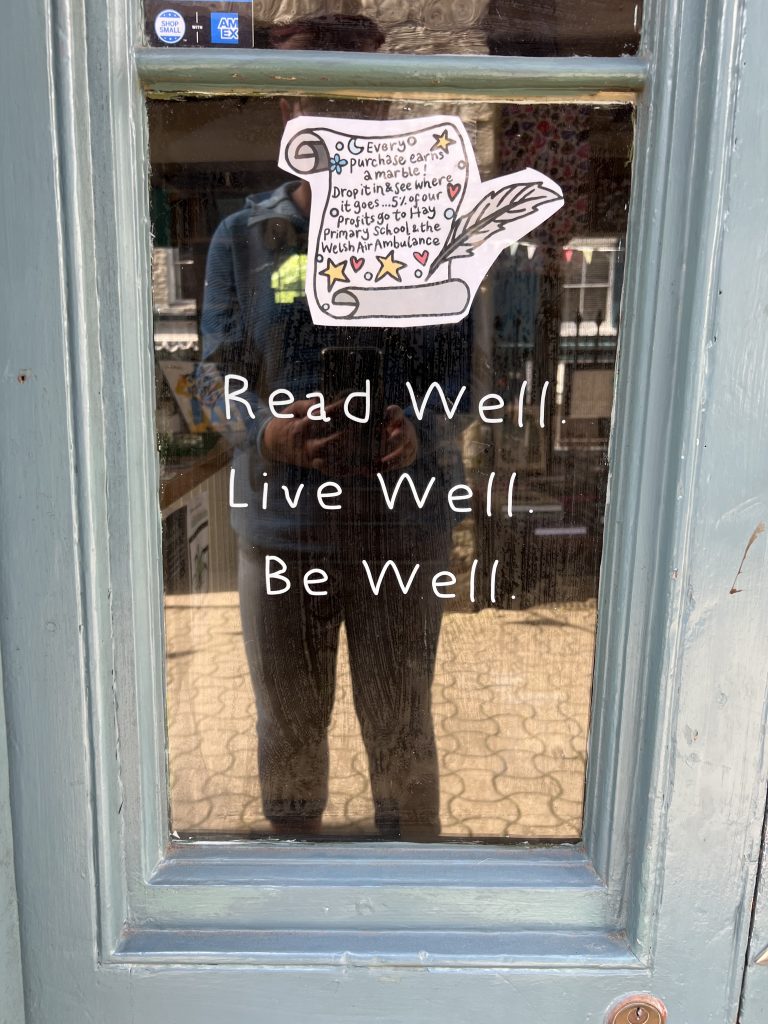 SHOP
SMALL
WITH
AM
EX
Every
purchase earns
a marble!
Drop it in & see where
it goes...5% of our
profits go to Hay
Primary School & the
Welsh Air Ambulance
Read Well.
Live Well.
Be Well.